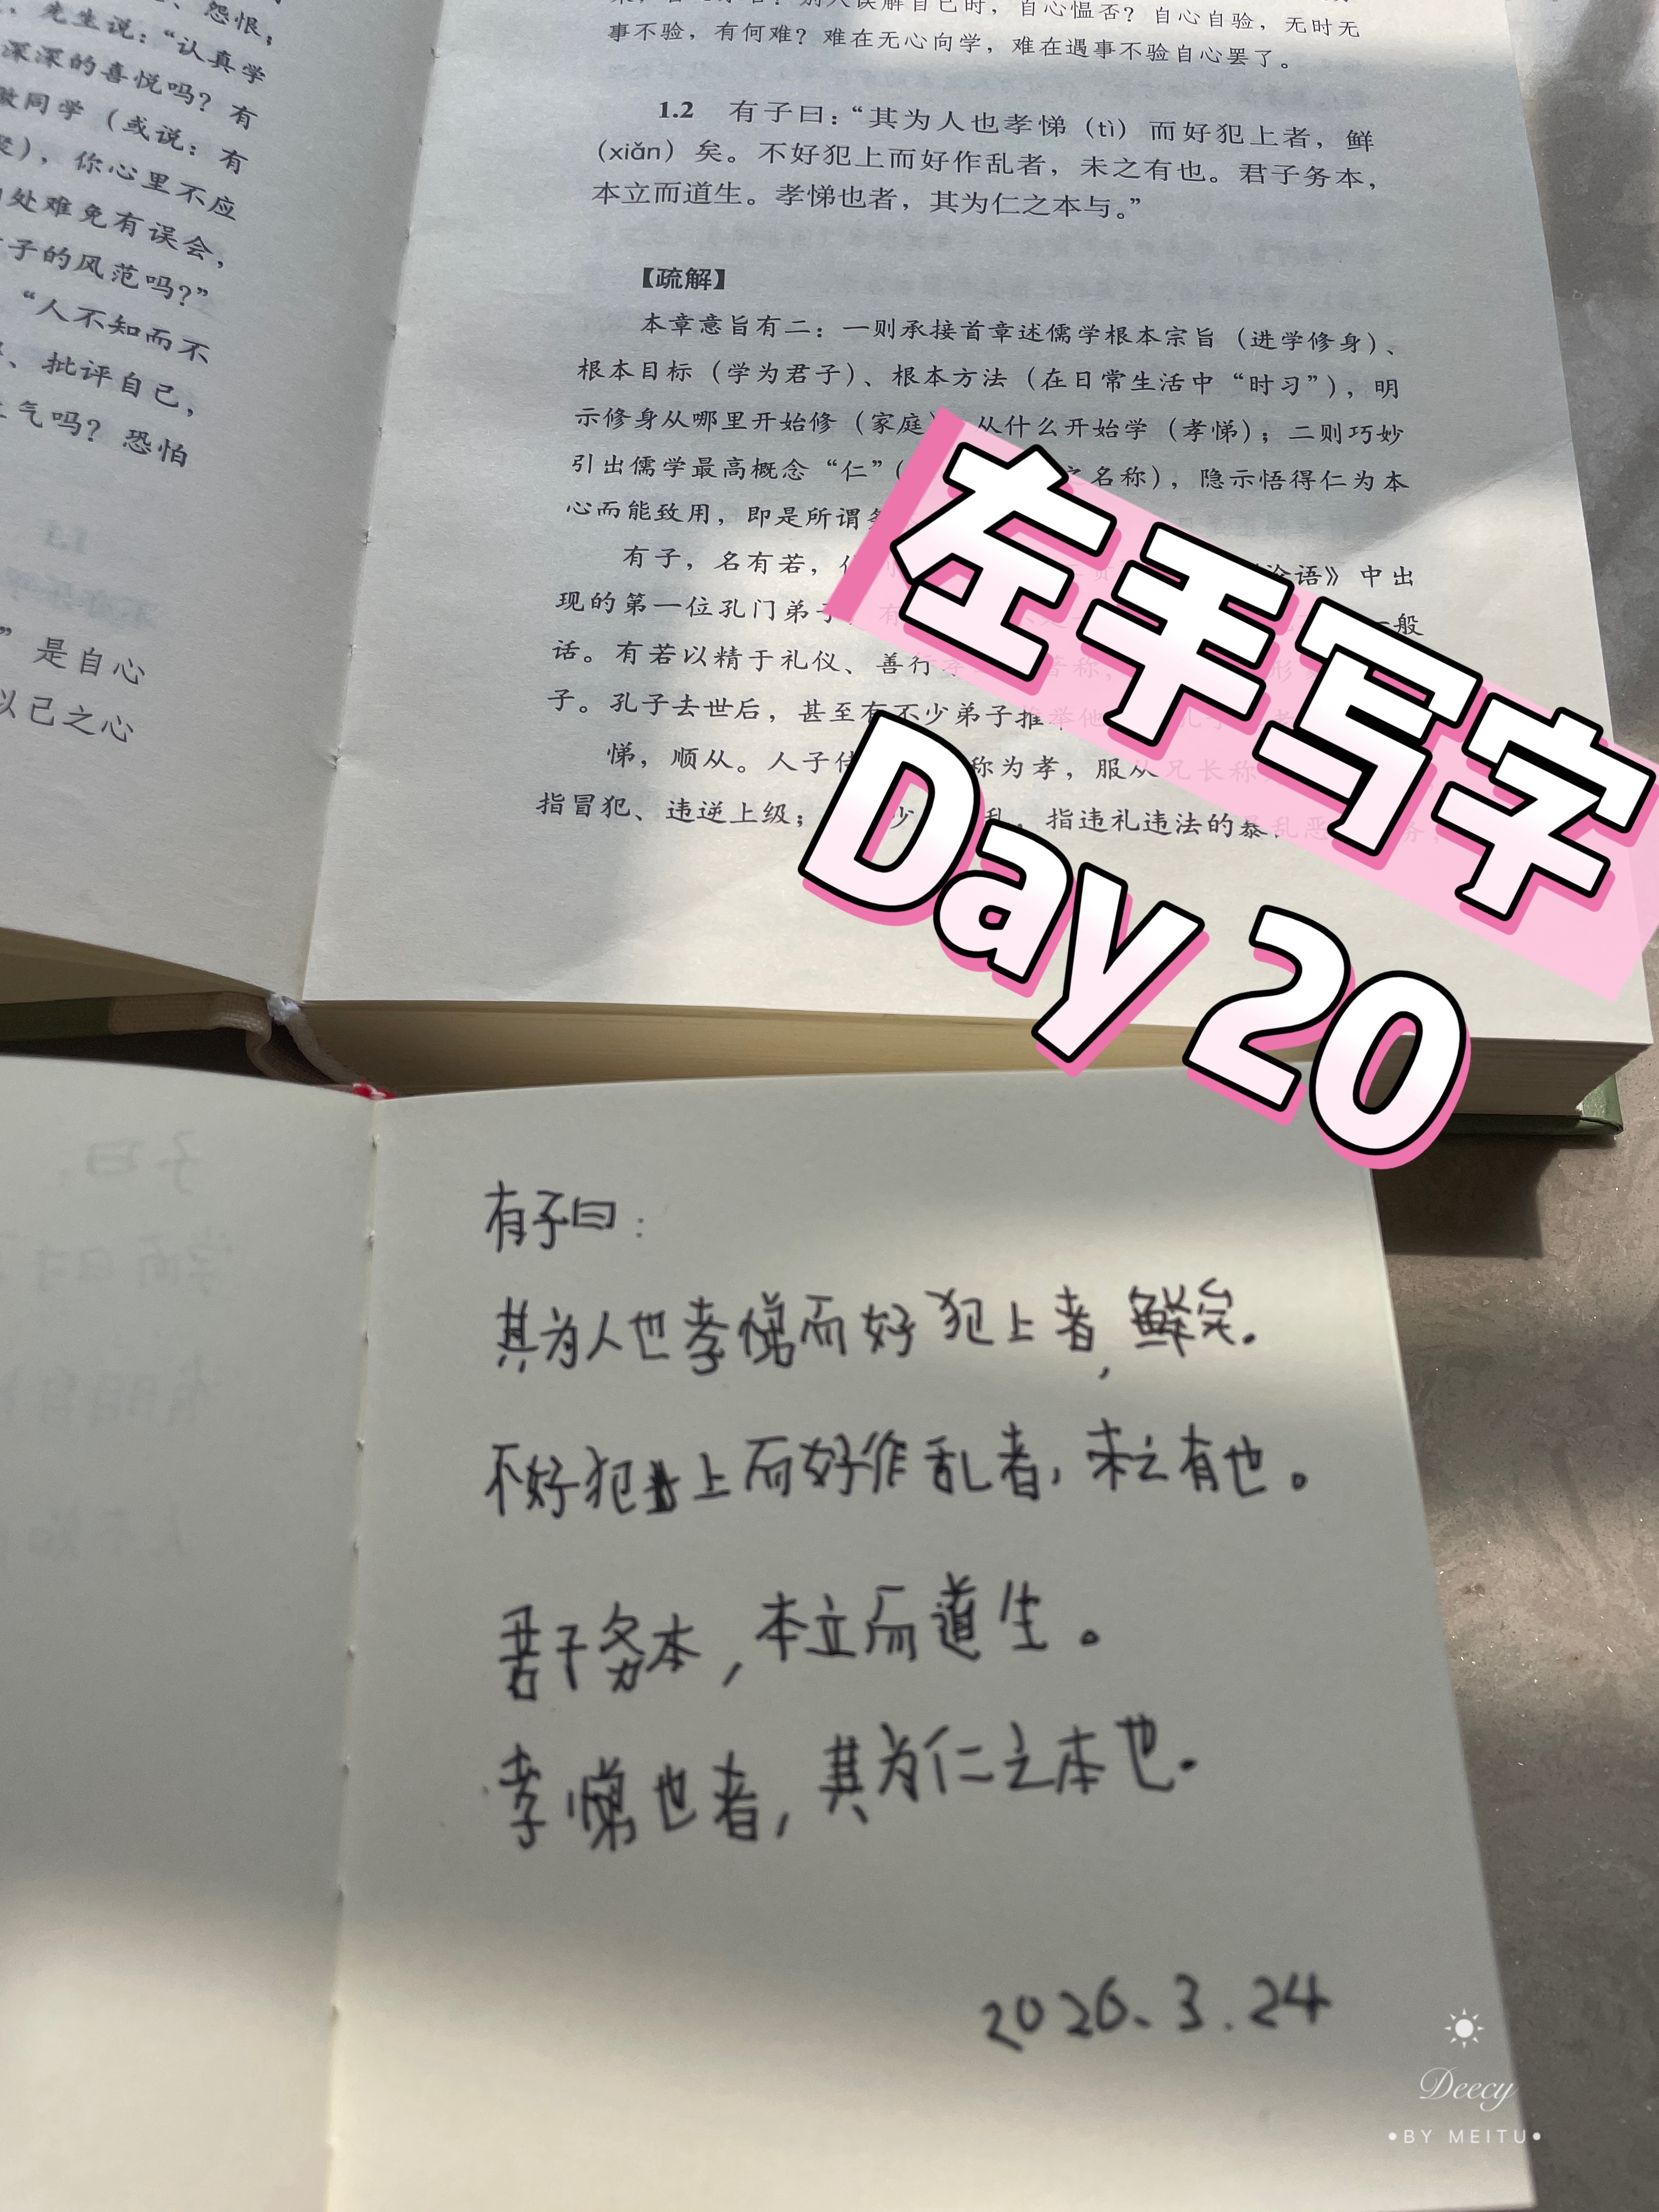 、怨恨；
，先生说：“认真学
深深的喜悦吗？有
同学（或说：有
），你心里不应
处难免有误会，
子的风范吗？”
“人不知而不
、批评自己，
气吗？恐怕
1.1
”是自心
以己之心
自心愠否？自心自验，无时无
事不验，有何难？难在无心向学，难在遇事不验自心罢了。
1.2 有子曰：“其为人也孝悌（tì）而好犯上者，鲜
（xiǎn）矣。不好犯上而好作乱者，未之有也。君子务本，
本立而道生。孝悌也者，其为仁之本与。”
【疏解】
本章意旨有二：一则承接首章述儒学根本宗旨（进学修身）、
根本目标（学为君子）、根本方法（在日常生活中“时习”），明
示修身从哪里开始修（家庭 从什么开始学（孝悌）；二则巧妙
引出儒学最高概念“仁”（ 之名称），隐示悟得仁为本
心而能致用，即是所谓
有子，名有若， 论语》中出
现的第一位孔门弟子 般
话。有若以精于礼仪、善行 称，
子。孔子去世后，甚至有不少弟子推举他
悌，顺从。人子 称为孝，服从兄长称
指冒犯、违逆上级； 少 乱，指违礼违法的暴乱恶
左手写字
Day 20
子曰：
学而时
有朋自
人不知
有子曰：
其为人也孝悌而好犯上者，鲜矣.
不好犯上而好作乱者，未之有也。
君子务本，本立而道生。
孝悌也者，其为仁之本也.
2026、3.24
Deecy
•BY MEITU•